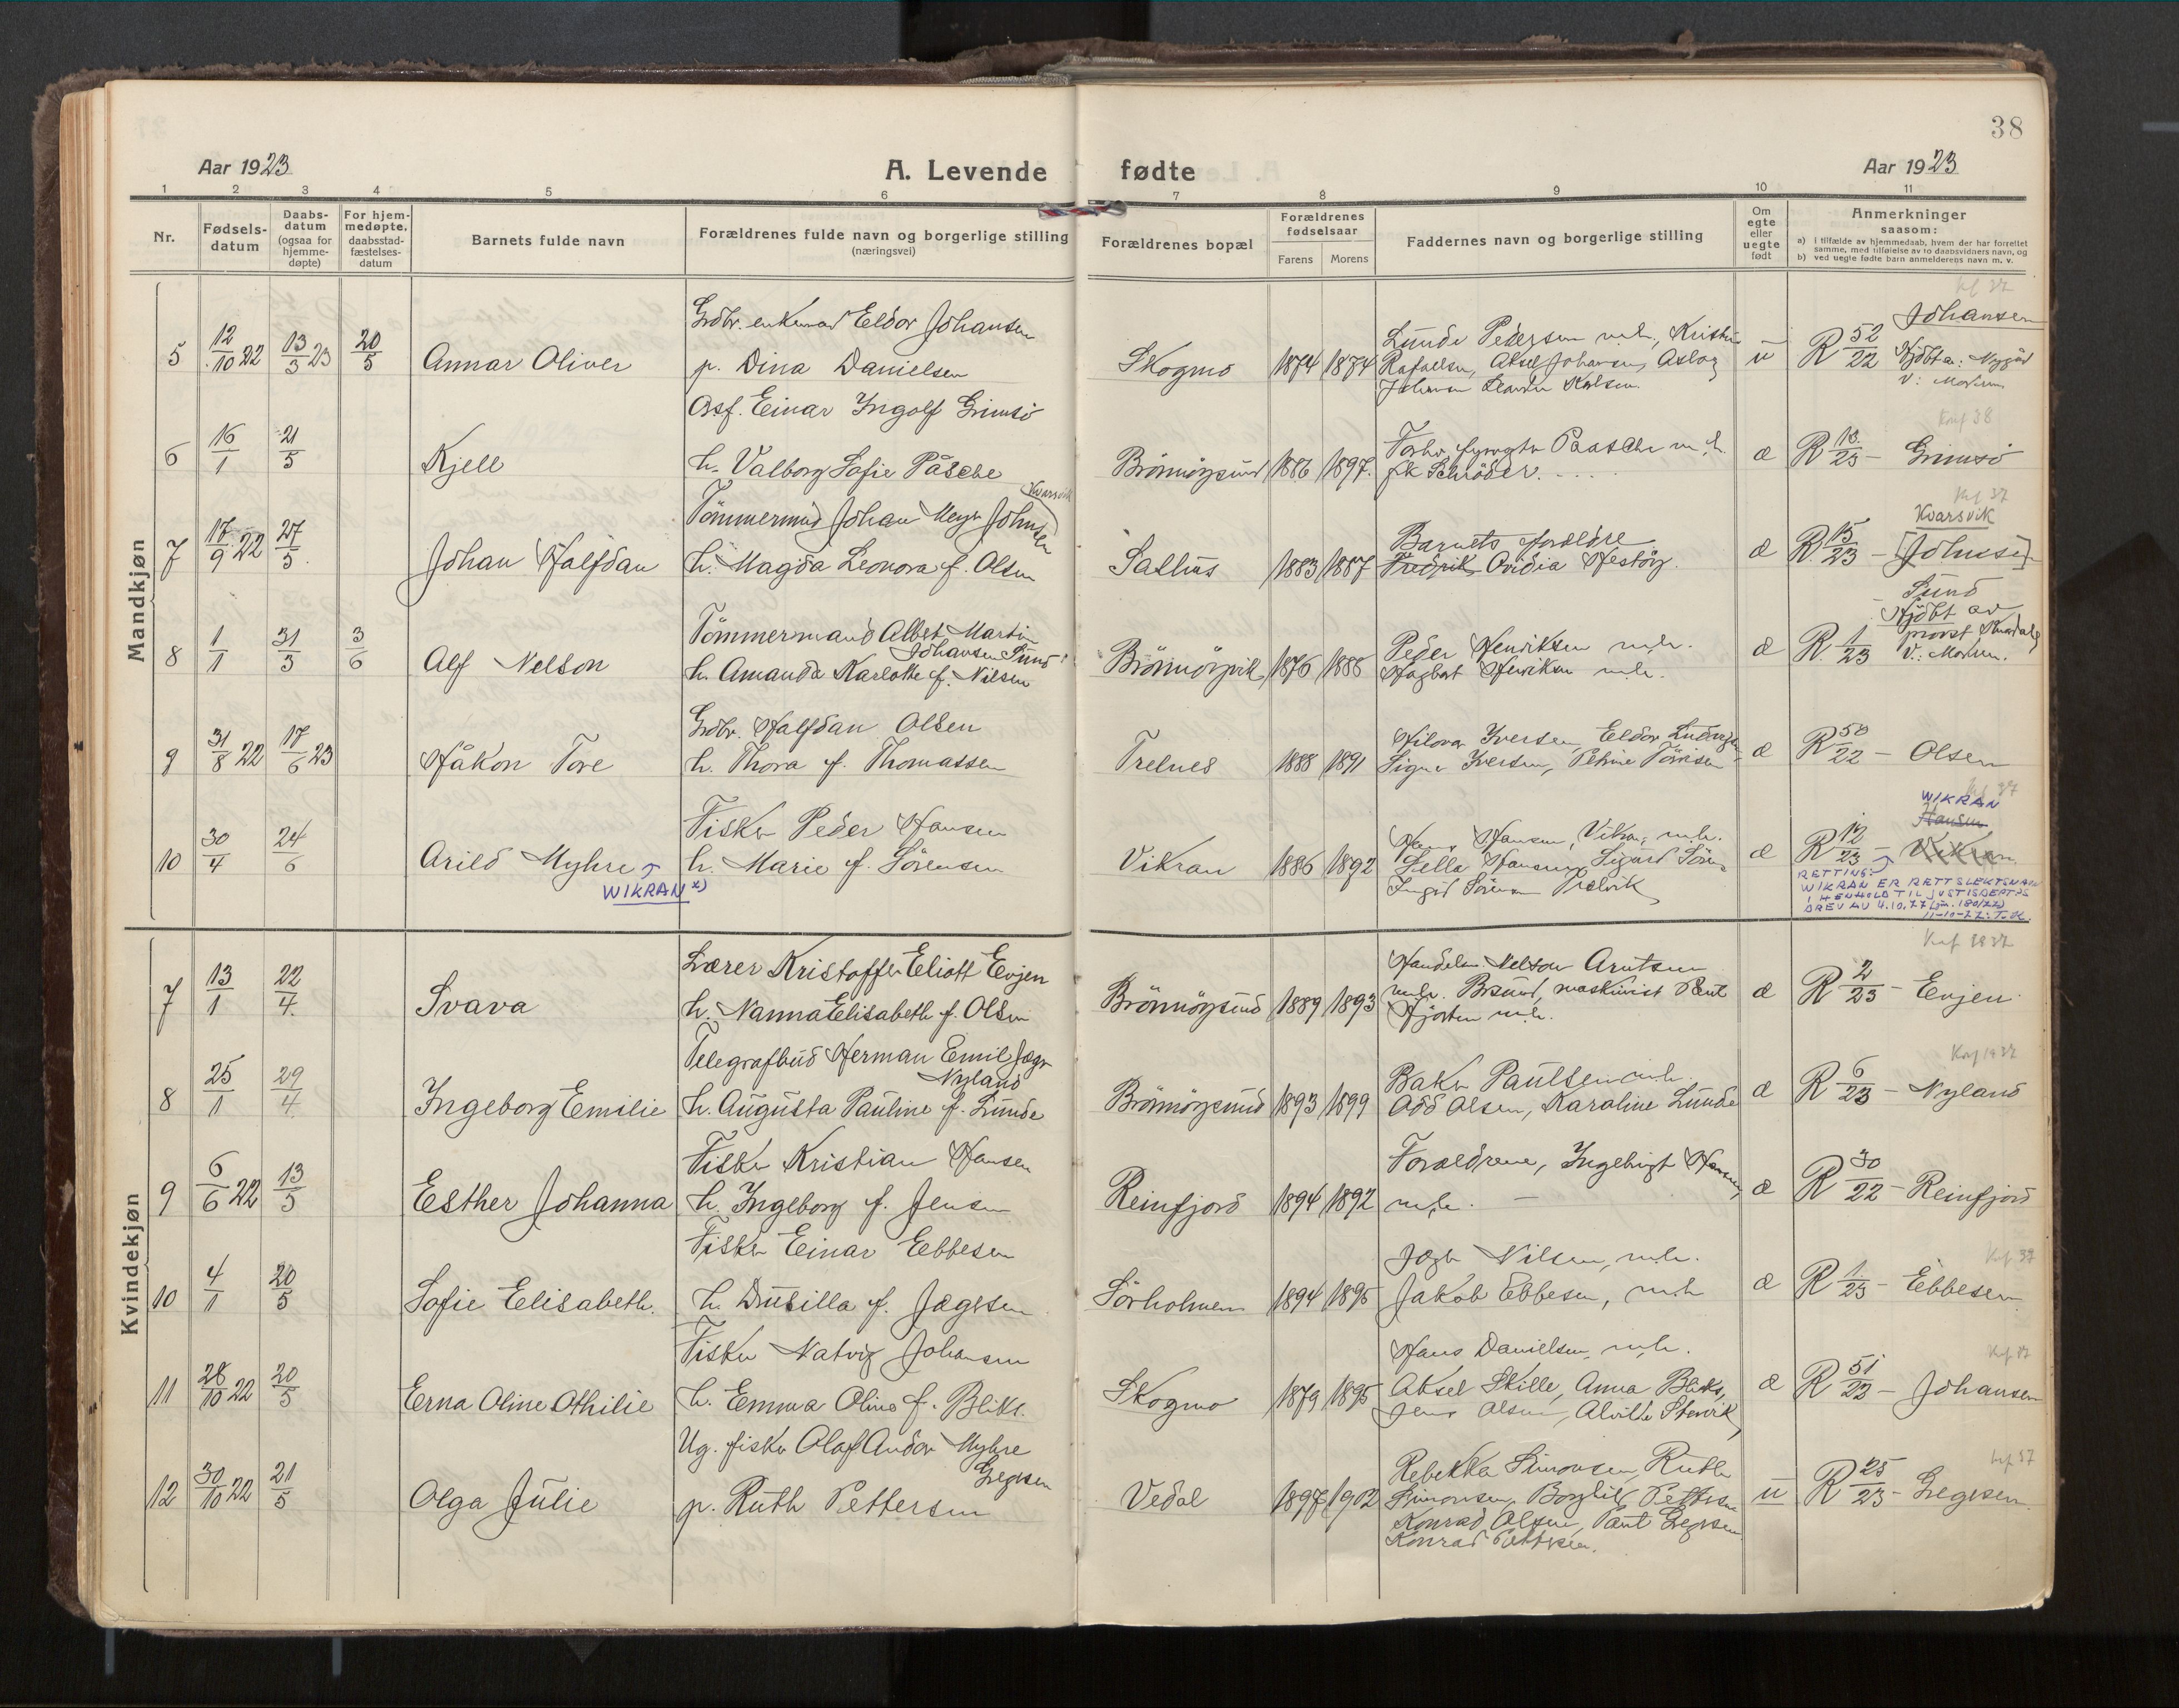 38
Aar 1923 A. Levende fødte Aar 1923
1 2 3 4 5 6 7 8 9 10 11
Nr.
Fødsels-
datum
Daabs-
datum
(ogsaa for
hjemme-
døpte)
For hjem-
medøpte,
daabsstad-
fæstelses-
datum
Barnets fulde navn
Forældrenes fulde navn og borgerlige stilling
(næringsvei)
Forældrenes bopæl
Forældrenes
fødselsaar
Farens Morens
Faddernes navn og borgerlige stilling
Om
egte
eller
uegte
født
Anmerkninger
saasom:
a) i tilfælde av hjemmedaab, hvem der har forrettet
samme, med tilføielse av to daabsvidners navn, og
b) ved uegte fødte barn anmelderens navn m. v.
Mandkjøn
5 12/10 22 13/3 23 20/5 Annar Oliver
Grdbr. enkemand Eldor Johansen
p. Dina Danielsen
Skogmo 1874 1874
Lunde Pedersen m.h., Kristin
Rafaelsen, Aksel Johansen, Aslaug
u R 52/22
Johansen
6 16/1 21/5 Kjell
Asf. Einar Ingolf Grimsö
h. Valborg Sofie Påsche
Brönnöysund 1886 1897
Paasche m.h.
frk Schröder.
æ R 18/23 - Grimsö
Konf 38
7 17/9 22 27/5 Johan Halfdan
Tömmermd Johan Meyer Johnsen
Kvarsvik
h. Magda Leonora f. Olsen
Salhus 1883 1887
Barnets foreldre
Fredrik Ovidia Hestöy.
æ R. 15/23 - [Johnsen]
Kvarsvik
Kf 37
8 1/1 31/3 3/6 Alf Nelson
Tömmermand Albert Martin
Johansen Sund
h. Amanda Karlotte f. Nilsen
Brönnöyvik 1876 1888
Peder Henriksen m.h.
Hagbart Henriksen m.h.
æ R. 1/23
Sund
Hjdbt av
provst
9 31/8 22 17/6 23 Håkon Tore
Grdbr. Halfdan Olsen
h. Thora f. Thomassen
Trelnes 1888 1891
Hilmar Iversen, Eldor Ludvigsen
Signe Iversen, Petrine Tönnesen
æ R 50/22 - Olsen
10 30/4 24/6 Arild Myhre
WIKRAN x)
Fisker Peder Hansen
h. Marie f. Sörensen
Vikran 1886 1892
Hans Hansen, Vikran, m.h.
Sella Hansen, Sigurd Sören
Ingrid Sörensen
æ R 12/23 - Vikran
WIKRAN
Hansen
RETTING:
WIKRAN ER RETT SLEKTSNAVN
I HENHOLD TIL JUSTISDEPT.S
BREV AV 4.10.77 (jnr. 180/77)
11-10-77: T.H.
Kvindekjøn
7 13/1 22/4 Svava
Lærer Kristoffer Eliott Evjen
h. Nanna Elisabeth f. Olsen
Brönnöysund 1889 1893
Handelsm Nelson Arntsen
m.h. Brsund, maskinist Bernt
Hjorten m.h.
æ R 2/23 - Evjen
8 25/1 29/4 Ingeborg Emilie
Telegrafbud Herman Emil Jæger
Nyland
h. Augusta Pauline f. Lunde
Brönnöysund 1893 1899
Baker Paulsen m.h.
Odd Olsen, Karoline Lunde
æ R 6/23 - Nyland
9 6/6 22 13/5 Esther Johanna
Fisker Kristian Hansen
h. Ingeborg f. Jensen
Reinfjord 1894 1892
Foreldrene, Ingebrigt Hansen
m.h.
æ R 30/22 - Reinfjord
10 4/1 20/5 Sofie Elisabeth.
Fisker Einar Ebbesen
h. Drusilla f. Jægersen
Sörholmen 1894 1895
Jæger Nilsen, m.h.
Jakob Ebbesen, m.h
æ R 1/23 - Ebbesen
Kf 37
11 28/10 22 20/5 Erna Oline Othilie
Fisker Natvig Johansen
h. Emma Oline f. Bliks.
Skogmo 1879 1895
Hans Danielsen, m.h.
Aksel Skille, Anna Bliks,
Jens Olsen, Alvilde
æ R 51/22 - Johansen
12 30/10 22 21/5 Olga Julie
Ug. fisker Olaf Andor Myhre
Gregersen
p. Ruth Pettersen
Vedal 1897 1902
Rebekka Simonsen, Ruth
Simonsen, Borghild Pettersen
Konrad Olsen, Paul Gregersen
Konrad Pettersen.
u R 25/23 - Gregersen